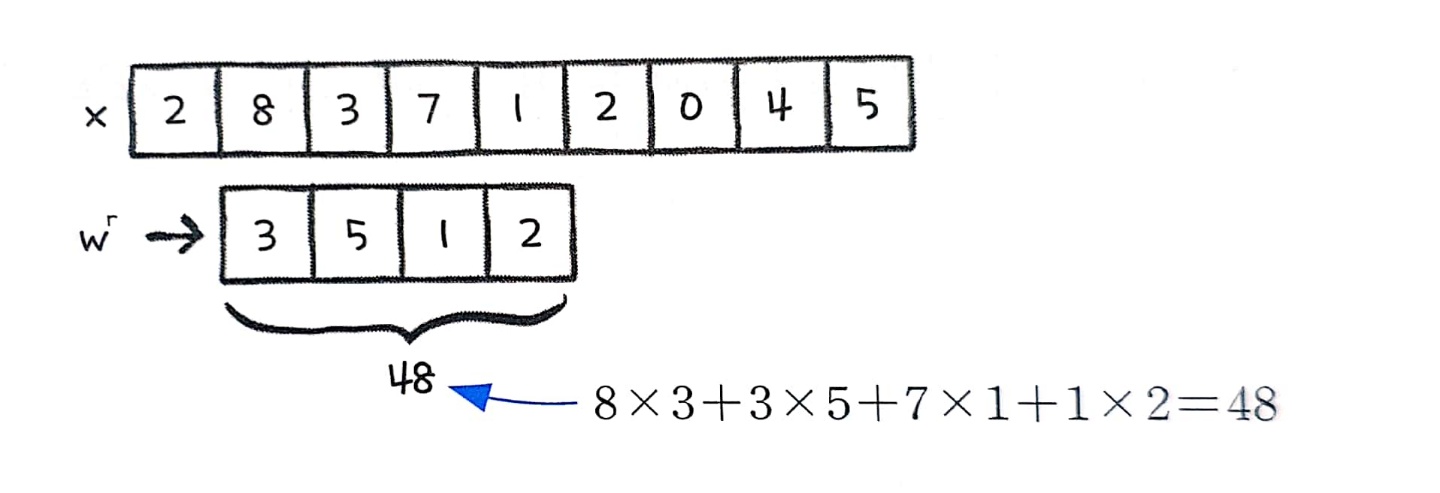 x 2 8 3 7 1 2 0 4 5
wʳ → 3 5 1 2
48
8×3+3×5+7×1+1×2=48